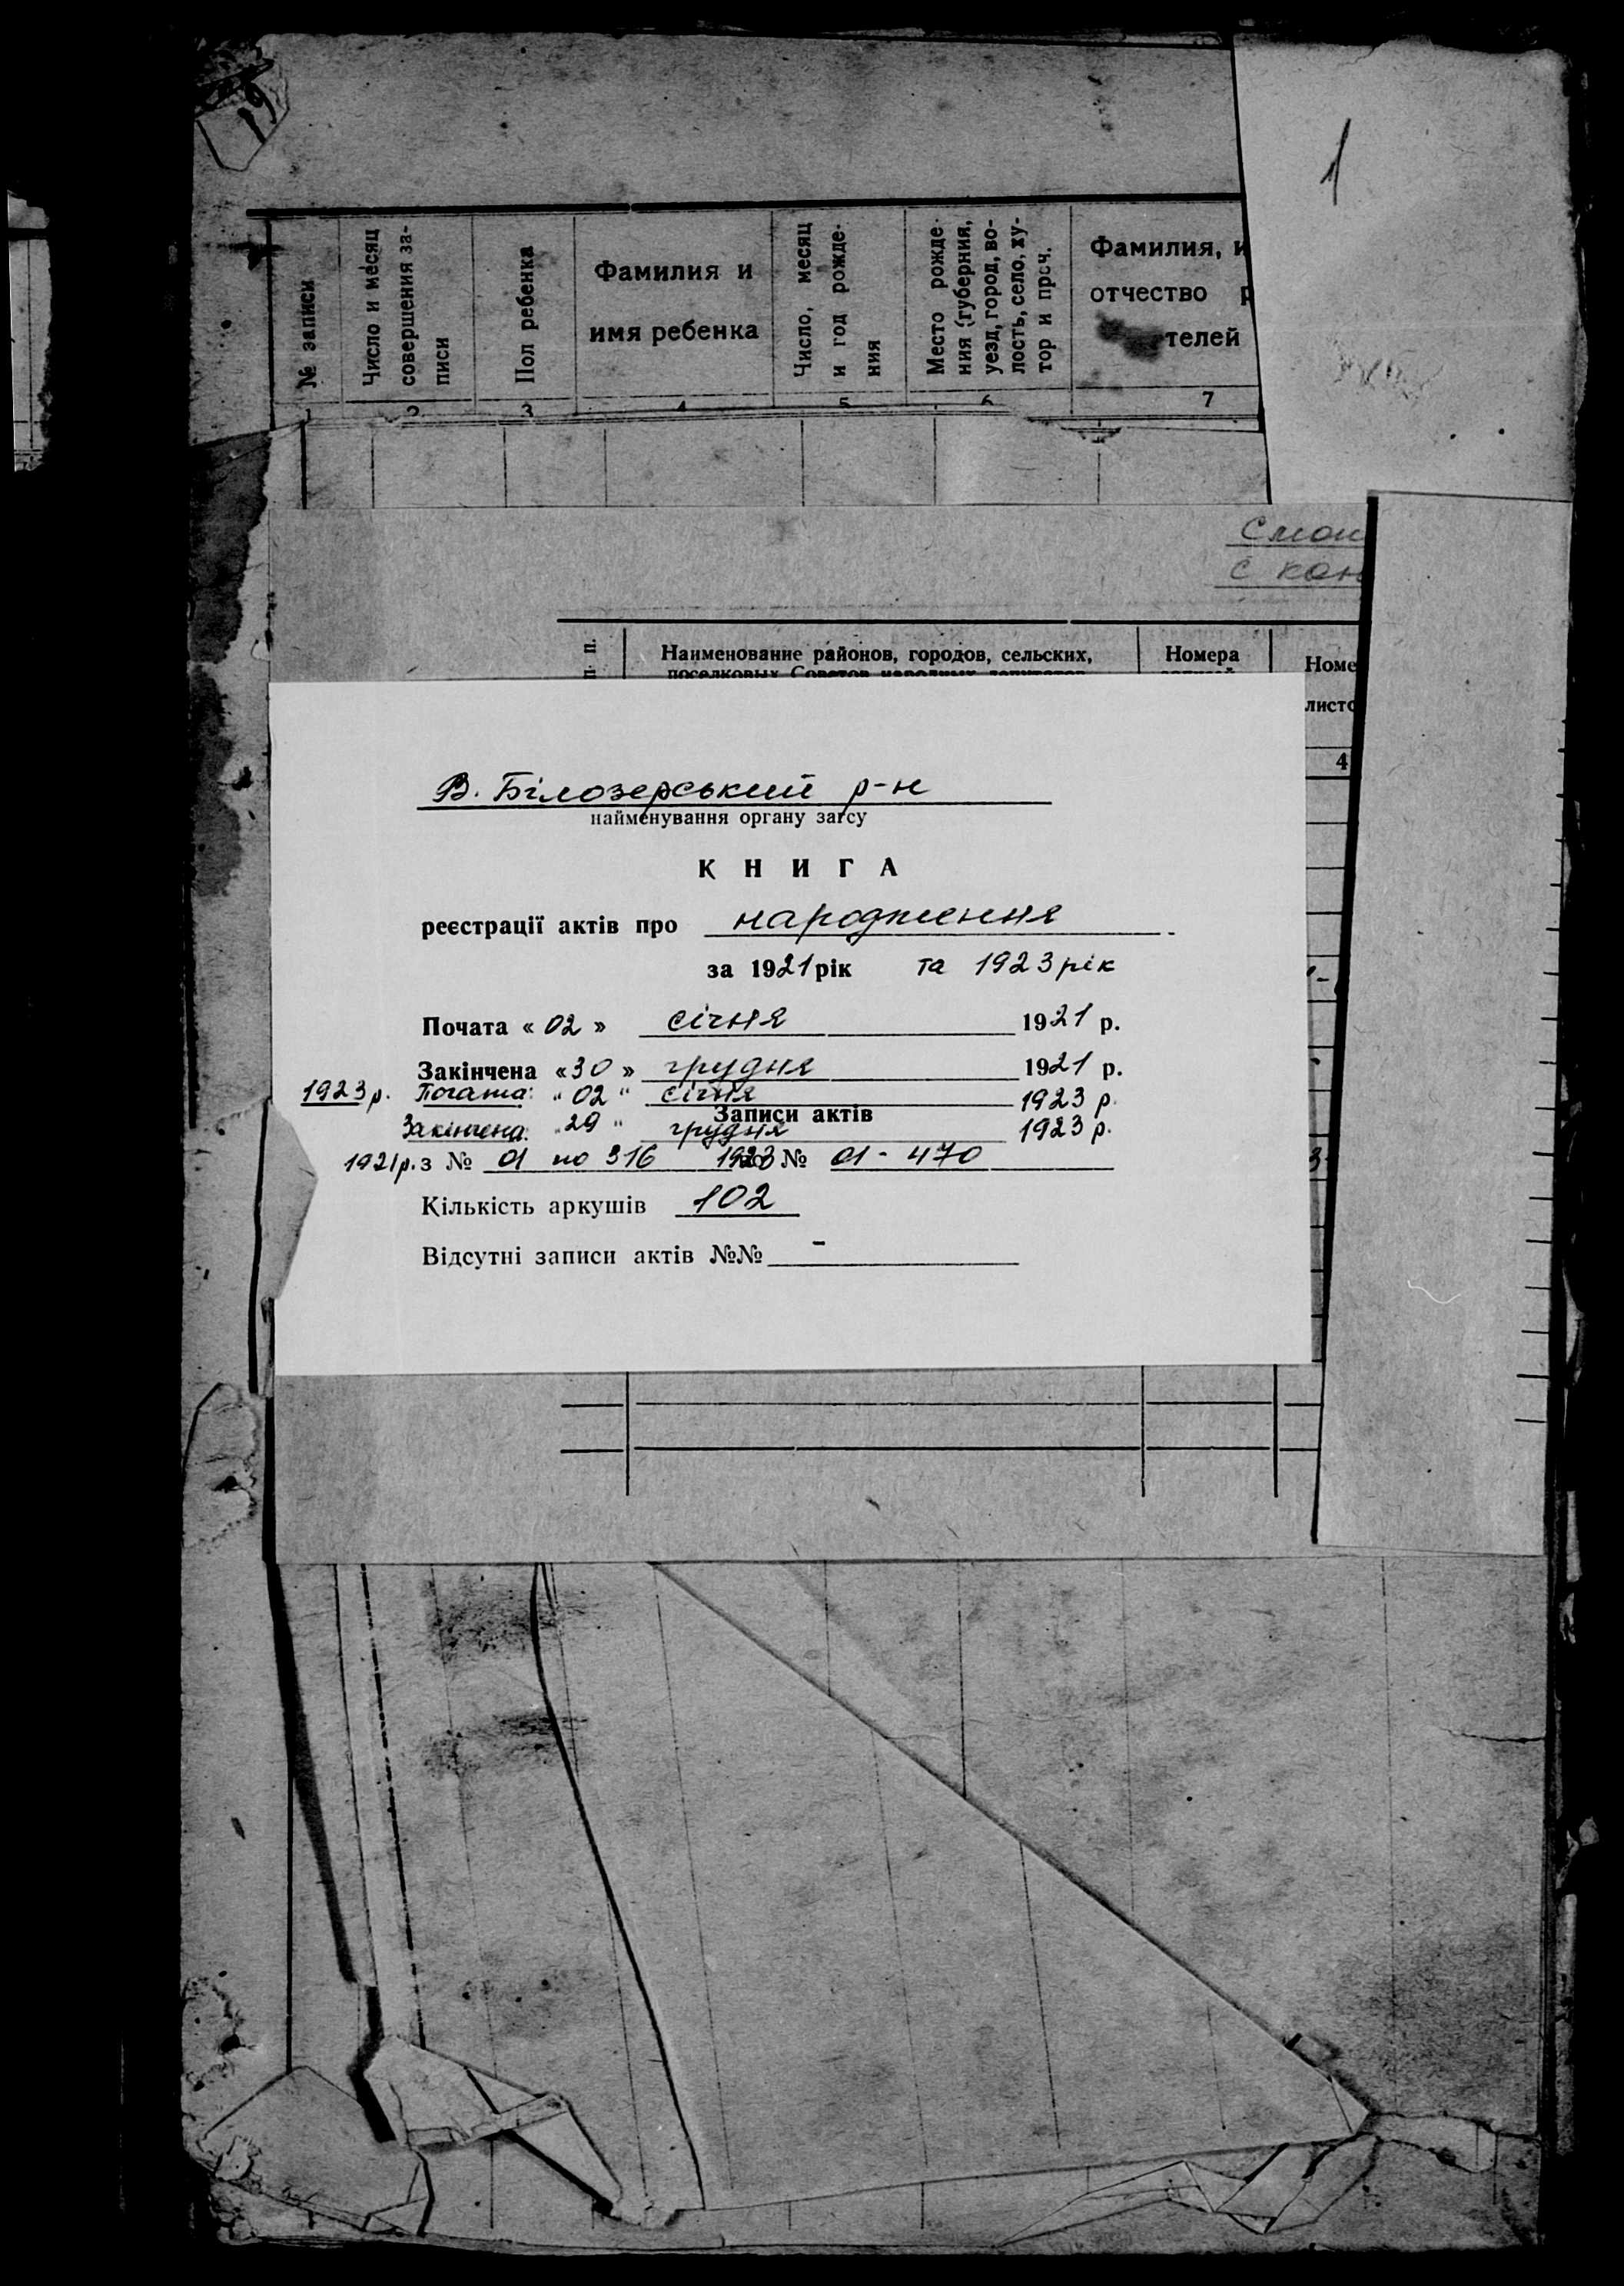 19
1
№ записи
Число и месяц
совершения за-
писи
Пол ребенка
Фамилия и
имя ребенка
Число, месяц
и год рожде-
ния
Место рожде-
ния (губерния,
уезд, город, во-
лость, село, ху-
тор и проч.
Фамилия, и
отчество р
телей
1 2 3 4 5 6 7
Смон
с кон
п. п.
Наименование районов, городов, сельских,
поселковых Советов народных депутатов
Номера
Номе
листо
4
В. Білозерський р-н
найменування органу загсу
КНИГА
реєстрації актів про народження
за 1921 рік та 1923 рік
Почата « 02 » січня 1921 р.
Закінчена «30 » грудня 1921 р.
1923 р. Почата: "02" січня 1923 р.
Записи актів
Закінчена: "29" грудня 1923 р.
1921 р. з № 01 по 316 1923 № 01 - 470
Кількість аркушів 102
Відсутні записи актів №№ -